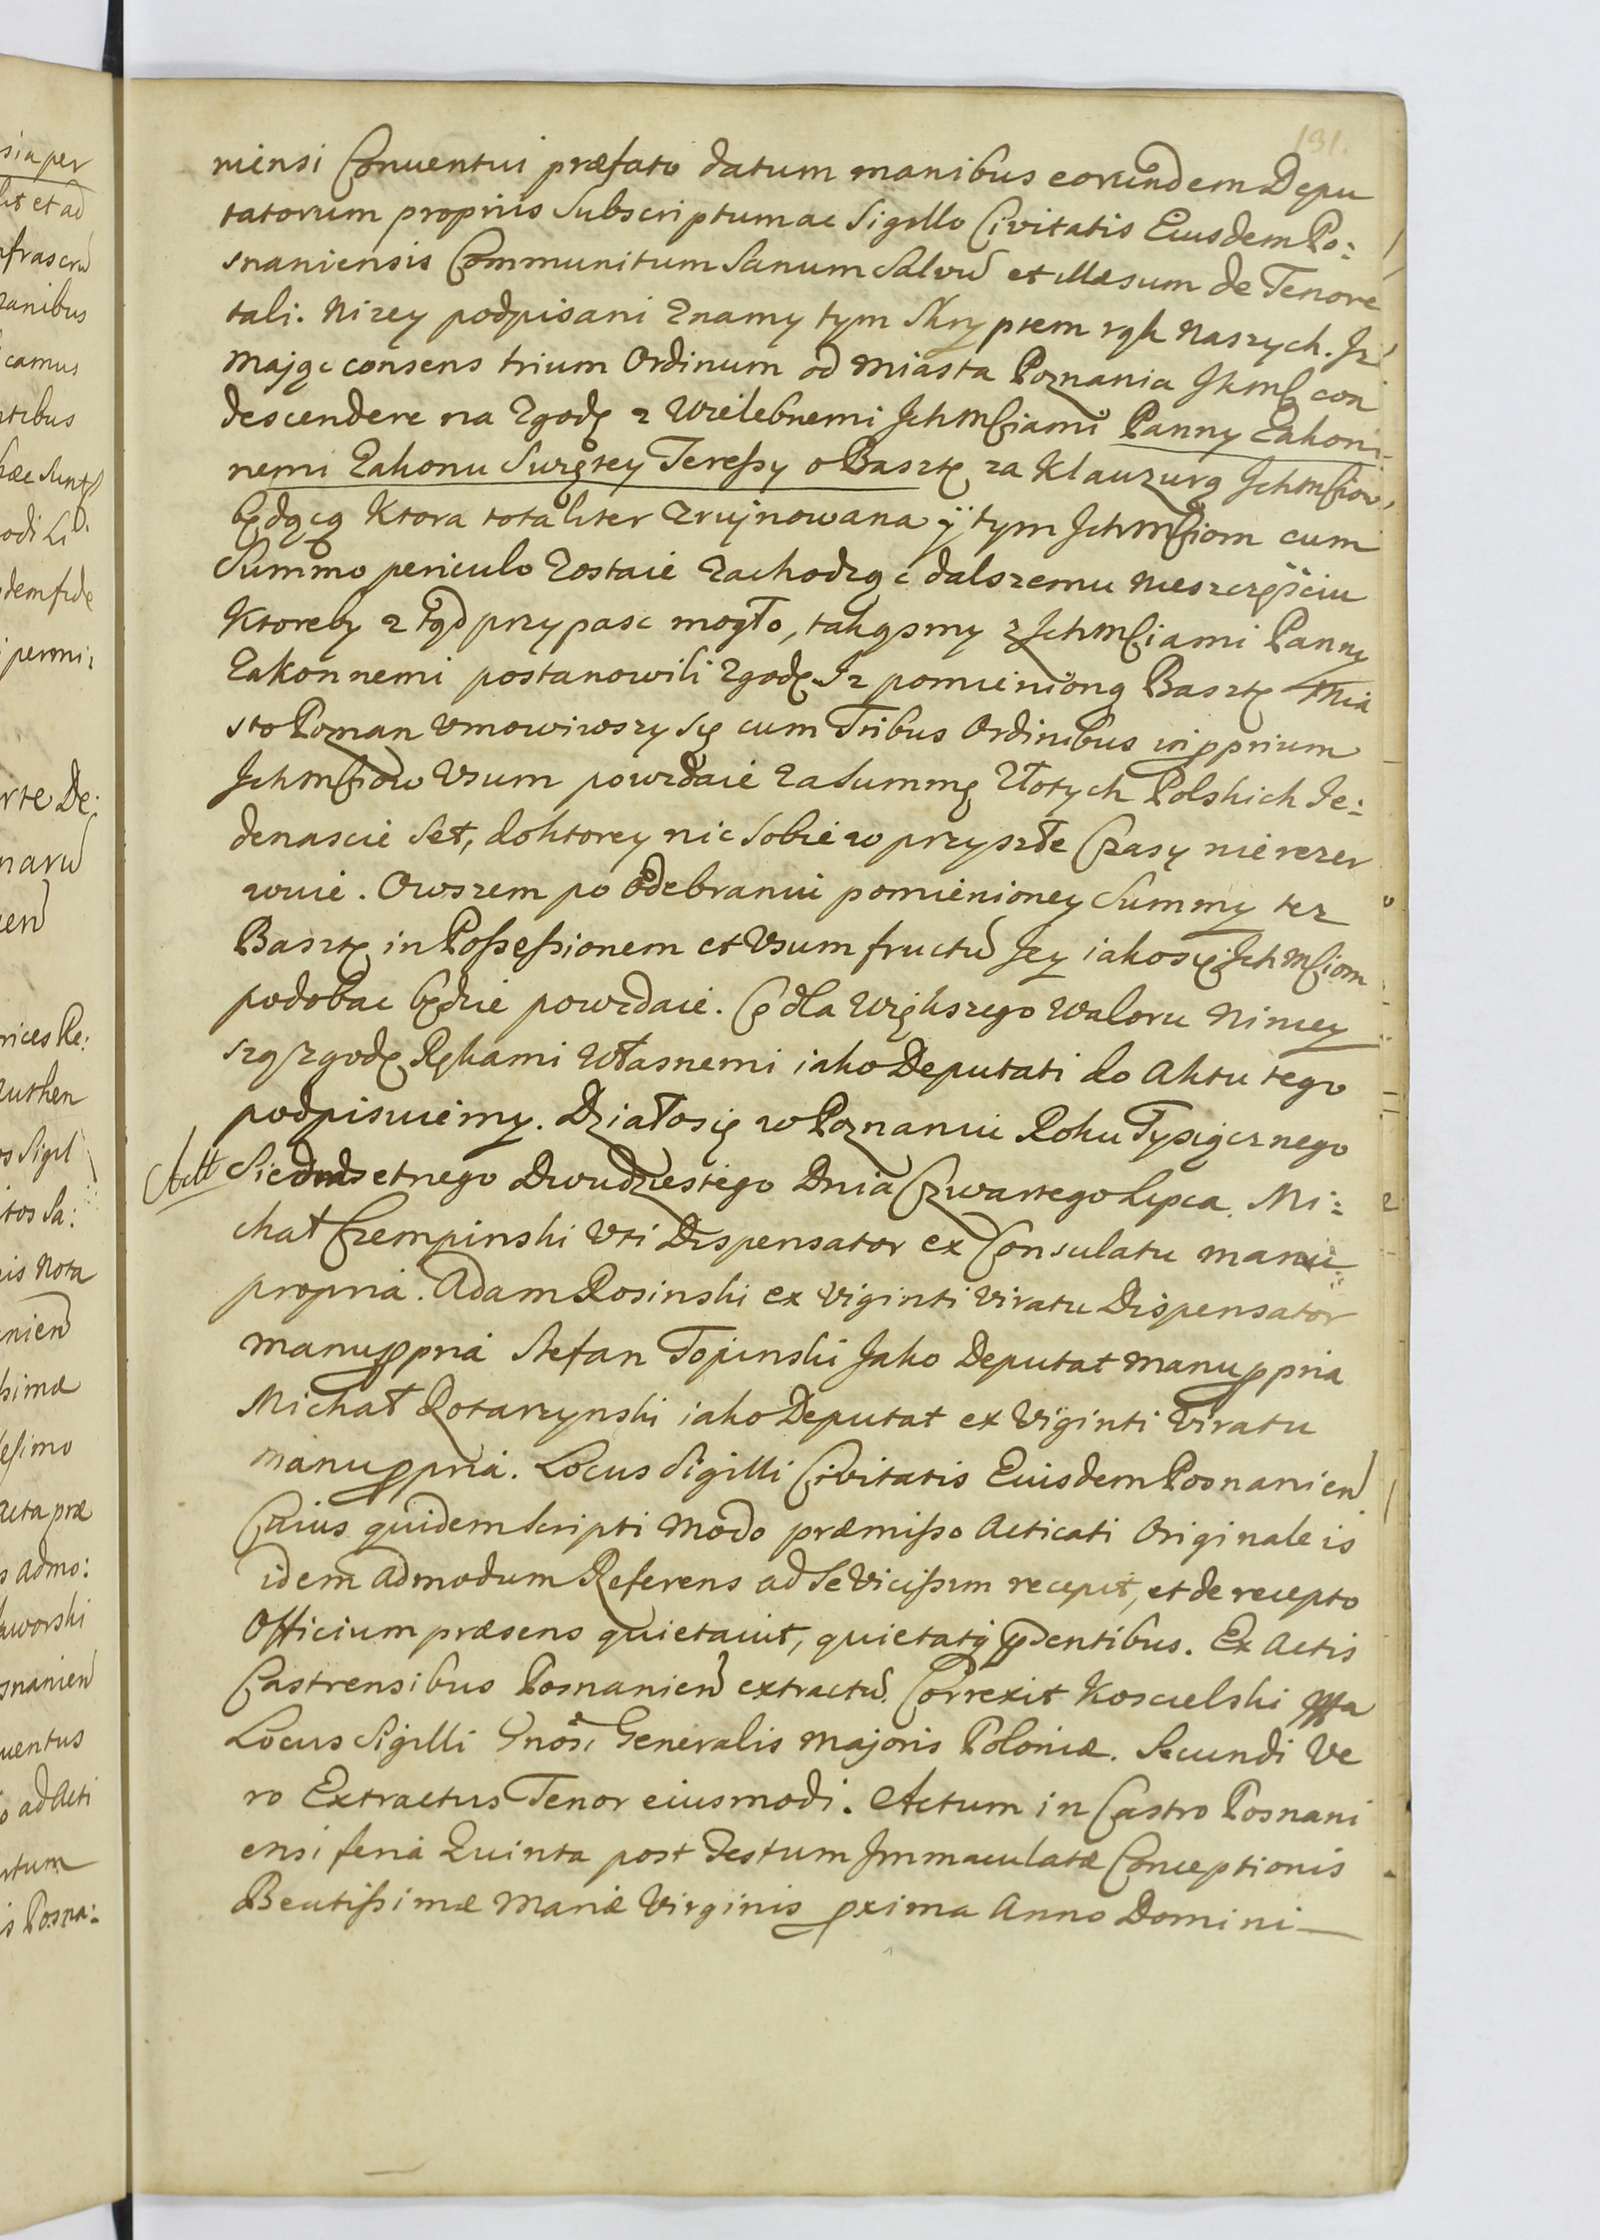 191.
niensi Conventui præfato datum manibus eorundem Depu
tatorum proprijs Subscriptum ac Sigillo Civitatis Eiusdem Po:
snaniensis Communitum Sanum Salvū et illæsum de Tenore
tali. Nizey podpisani Znamy tym Skryptem rąk Naszych. Jz
Mając consens trium Ordinum od Miasta Poznania con
descendere na Zgodę z Wielebnemi JchMściami Panny Zakon
nemi Zakonu Swiętey Teressy o Basztę za Klauzurą JchMściow
będącą Ktora totaliter Zrujnowana ÿ tym JchMściom cum
Summo periculo Zostaie Zachodząc dalszemu nieszczęściu
Ktoreby z tąd przypasc mogło, takąsmy z JchMściami Panny
Zakonnemi postanowili Zgodę. Jz pomienioną Basztę Mia
sto Poznan Umowiwszy się cum Tribus Ordinibus in pprium
JchMściow Usum powzdaie za Summę Złotych Polskich Je:
denascie Set, do ktorey nic Sobie w przyszłe Czasy nie rezer
wuie. Owszem po Odebraniu pomienioney Summy tez
Basztę in Possessionem et Usum fructū Jey iako się JchMściom
podobac będzie powzdaie. Co dla Większego Waloru Niniey
szą Zgodę Rękami Własnemi iako Deputati do Aktu tego
podpisuiemy. Działo się w Poznaniu Roku Tysiącznego
Siedmsetnego Dwudziestego Dnia Czwartego Lipca. Mi:
chał Czempinski Uti Dispensator ex Consulatu manu
propria. Adam Rosinski ex Viginti Viratu Dispensator
manu ppria Stefan Topinski Jako Deputat manu ppria
Michał Rotarzynski iako Deputat ex Viginti Viratu
manu ppria. Locus Sigilli Civitatis Eiusdem Posnanien
Cuius quidem Scripti Modo præmisso Acticati Originale is
idem Admodum Referens ad se Vicissim recepit, et de recepto
Officium præsens quietavit, quietatq pdentibus. Ex Actis
Castrensibus Posnanien extractū. Correxit Koscielski
Locus Sigilli Generalis Majoris Poloniæ. Secundi Ve
ro Extractus Tenor eiusmodi. Actum in Castro Posnani
ensi feria Quinta post Festum Immaculatæ Conceptionis
Beatissimæ Mariæ Virginis pxima Anno Domini